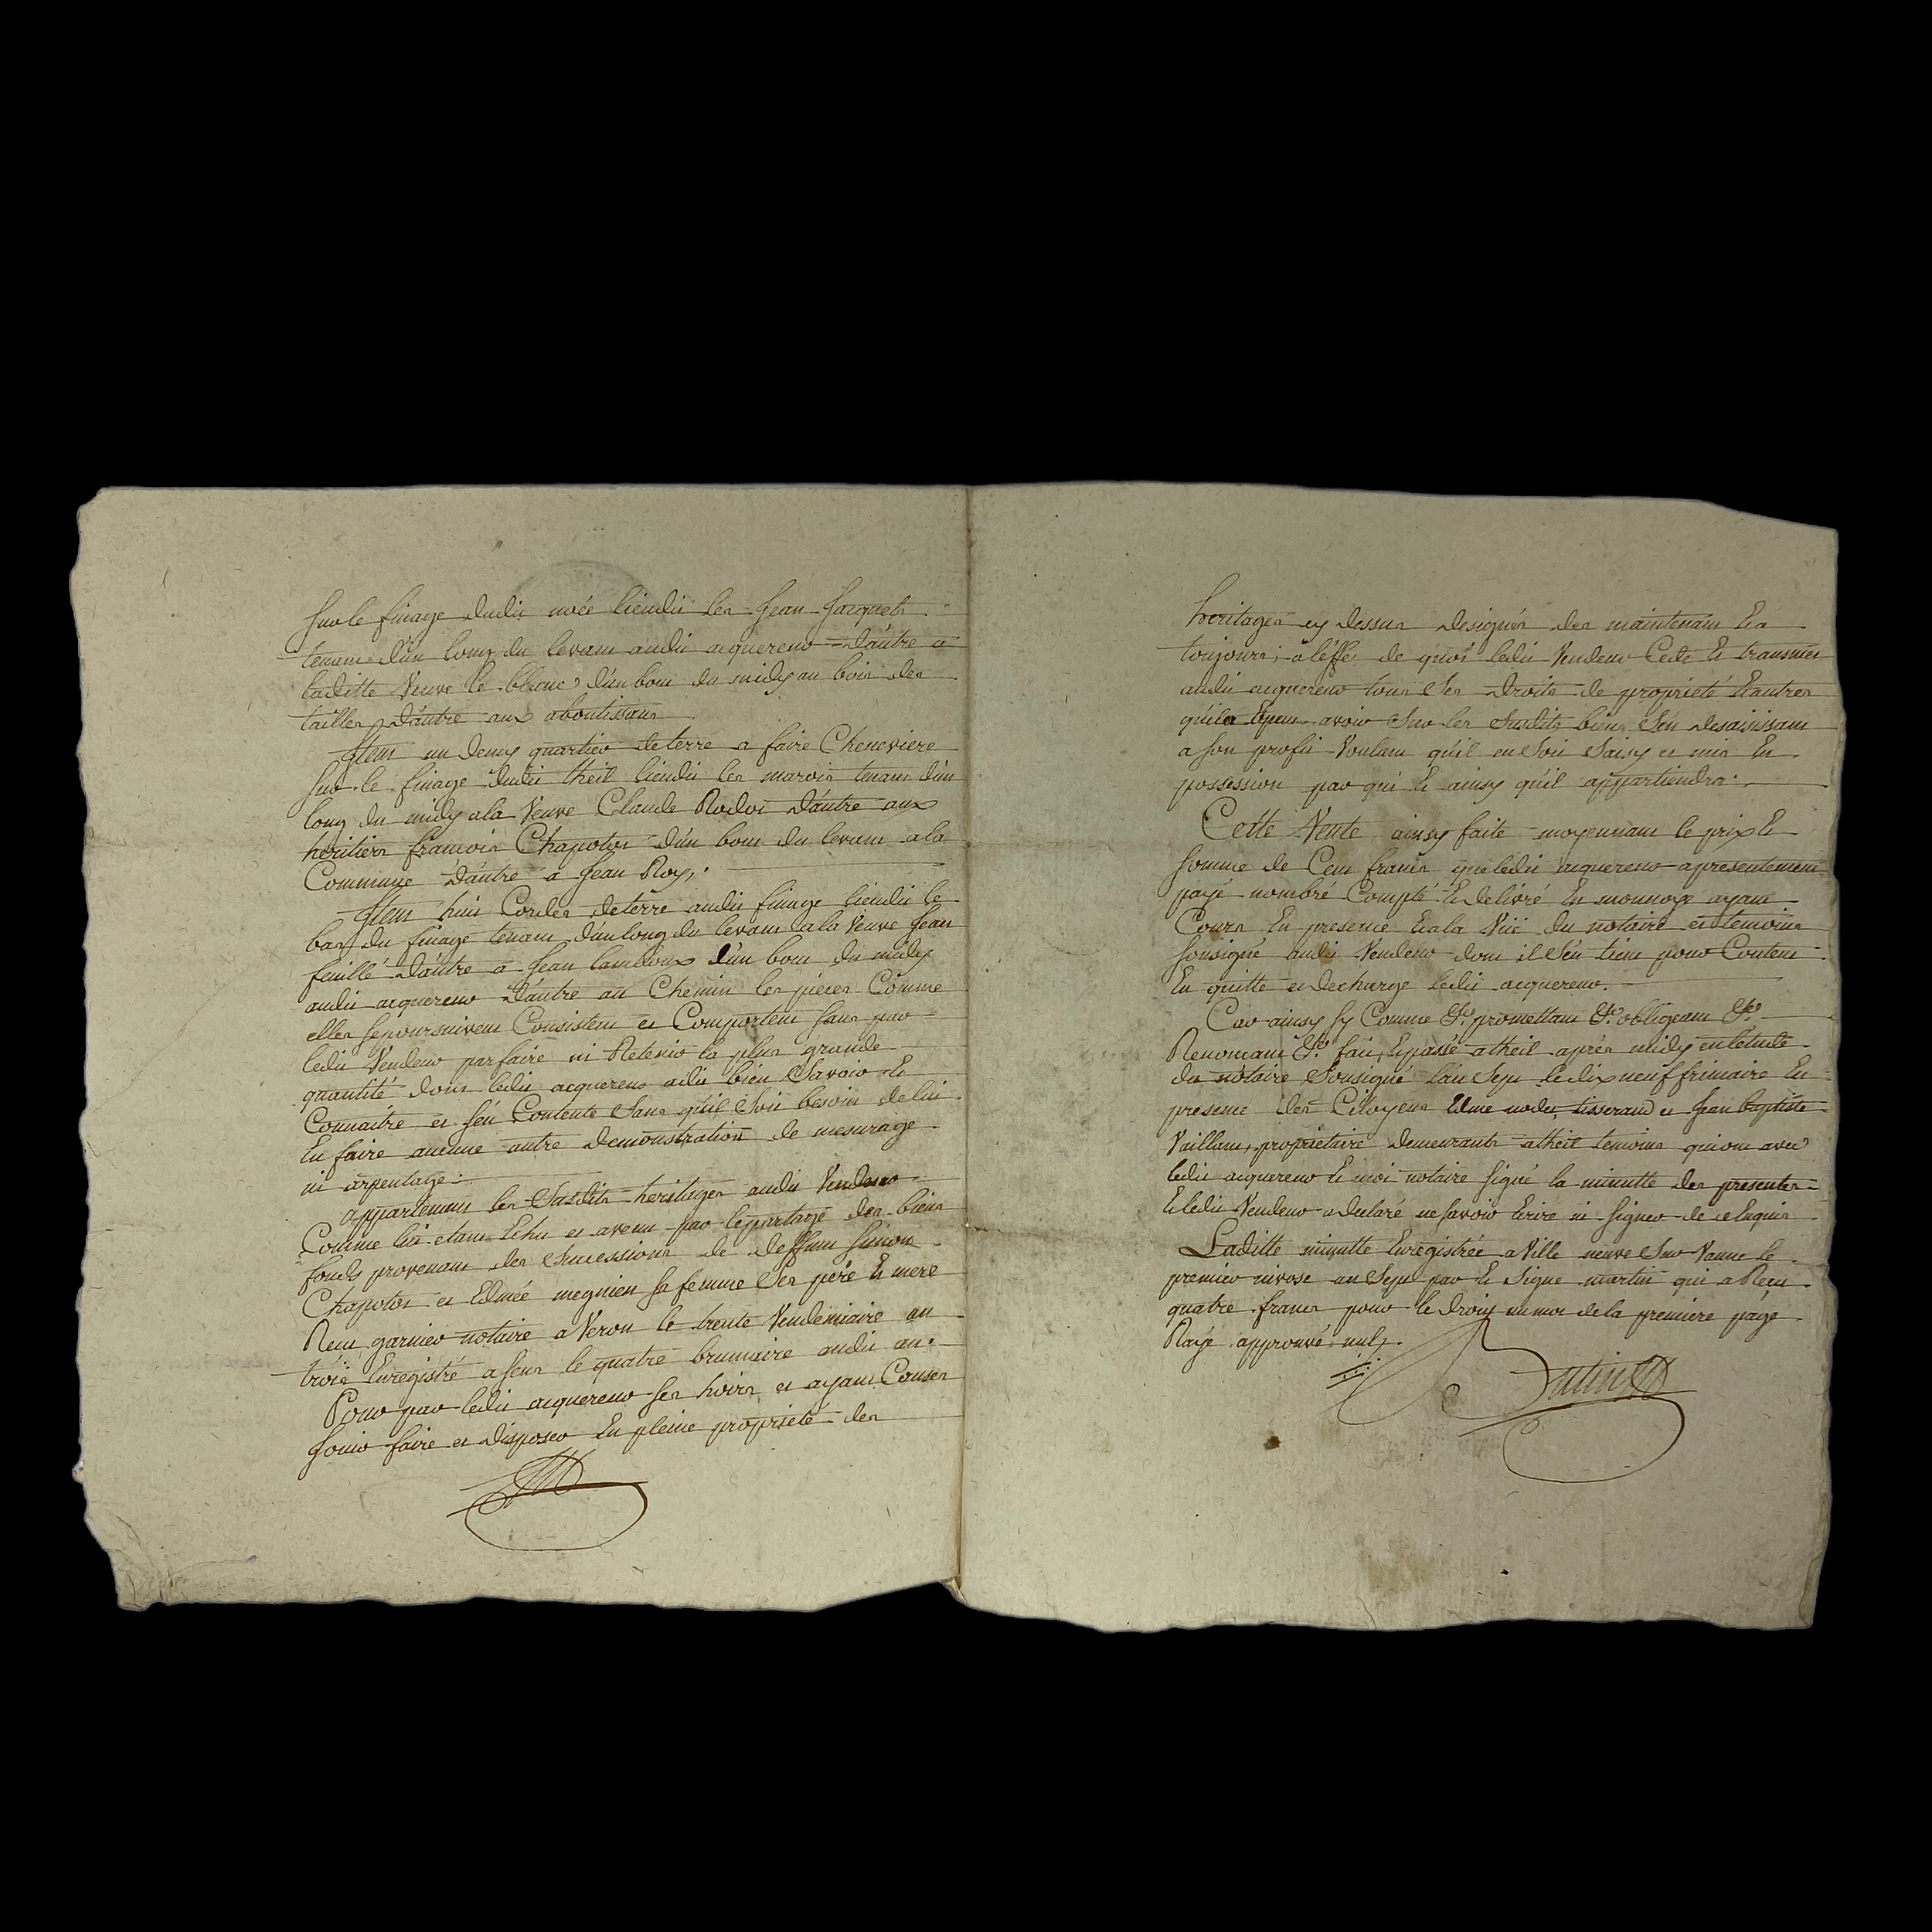 Sur le finage dudit noée lieudit les Jean Jacquets
tenant d'un long du levant audit acquereur d'autre a
laditte Veuve le blanc d'un bout du midy au bois des
tailles d'autre aux aboutissans
Item un demy quartier de terre a faire Cheneviere
Sur le finage dudit theil lieudit les marois tenant d'un
long du midy a la Veuve Claude Rodot d'autre aux
heritiers francois Chapotot d'un bout du levant a la
Commune d'autre a Jean Roy.
Item huit Cordes de terre audit finage lieudit le
bas du finage tenant d'un long du levant a la Veuve Jean
feuillé d'autre a Jean d'un bout du midy
audit acquereur d'autre au Chemin les pieces Comme
elles se poursuivent Consistent et Comportent sans par
ledit Vendeur parfaire ni Retenir la plus grande
quantité dont ledit acquereur a dit bien Savoir Et
Connaitre et s'en Contente Sans qu'il Soit besoin de lui
En faire aucune autre demonstration de mesurage
ni arpentage.
appartenant les Susdits heritages audit Vendeur
Comme lui etant Echu et avenu par le partage des biens
fonds provenant des Successions de deffunt Simon
Chapotot et Edmée megnien sa femme Ses père Et mere
Reçu garnier notaire a Veron le trente Vendemiaire an
trois Enregistré a Sens le quatre brumaire audit an.
Pour par ledit acquereur ses hoirs et ayant Causes
Jouir faire et disposer En pleine proprieté des
heritages cy dessus designés des maintenant Et a
toujours; a l'effet de quoi ledit Vendeur Cede Et transmet
audit acquereur tous Ses droits de proprieté Et autres
qu'il a Et peut avoir Sur les Susdits biens S'en desaisissant
a son profit Voulant qu'il en Soit Saisy et mis En
possession par qui Et ainsy qu'il appartiendra.
Cette Vente ainsy faite moyennant le prix Et
somme de Cent francs que ledit acquereur a presentement
payé nombré Compté Et delivré En monnoye ayant
Cours En presence Et a la Vüe du notaire et temoins
sousigné audit Vendeur dont il S'en tient pour Content
En quitte et decharge ledit acquereur.
Car ainsy sy Comme &a. promettant &a. obligeant &a.
Renoncant &a. fait Et passé a theil après midy en l'etude
du notaire Sousigné l'an Sept le dix neuf frimaire En
presence des Citoyens Edme nodet tisserand et Jean baptiste
Vaillant, proprietaire demeurants a theil temoins qui ont avec
ledit acquereur Et moi notaire signé la minutte des presentes
Et ledit Vendeur a declaré ne savoir Ecrire ni signer de ce Enquis
Laditte minutte Enregistrée a Ville neuve Sur Vanne le
premier nivose an Sept par Et Signe martin qui a Reçu
quatre francs pour le droit un mot de la premiere page
Rayé approuvé nul.